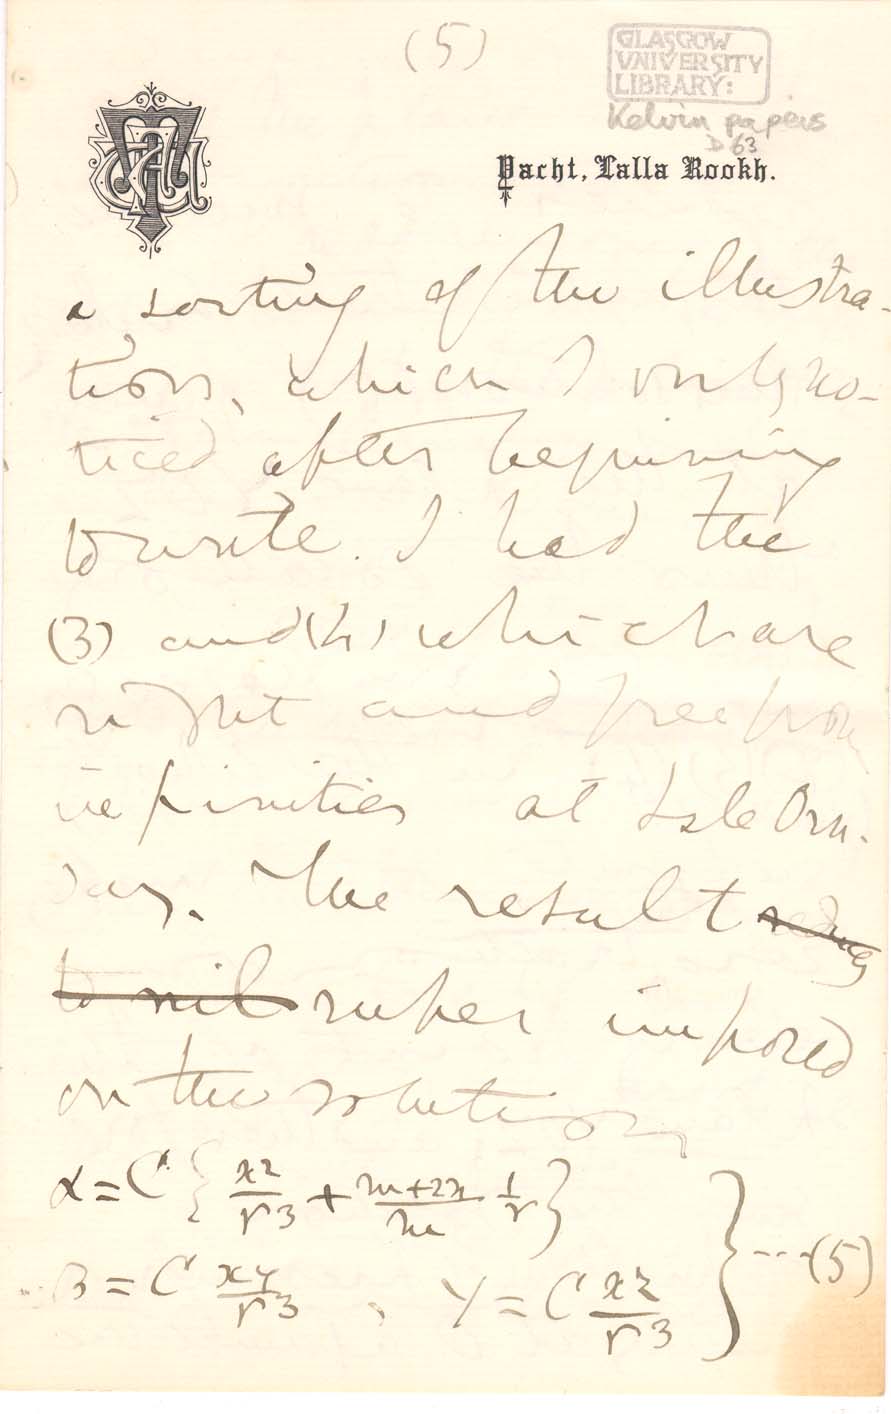 (5)
GLASGOW
UNIVERSITY
LIBRARY:
Kelvin papers
D 63
Yacht, Lalla Rookh.
a sorting of the illustra-
tion, which I only no-
ticed after beginning
to write. I had the
(3) and (4) which are
right and free from
infinities at Isle Orn-
say. The result reduces
to nil superimposed
on the solution
α = C { x²/r³ + m+2n/m 1/r }
β = C xy/r³, γ = C xz/r³ } --- (5)